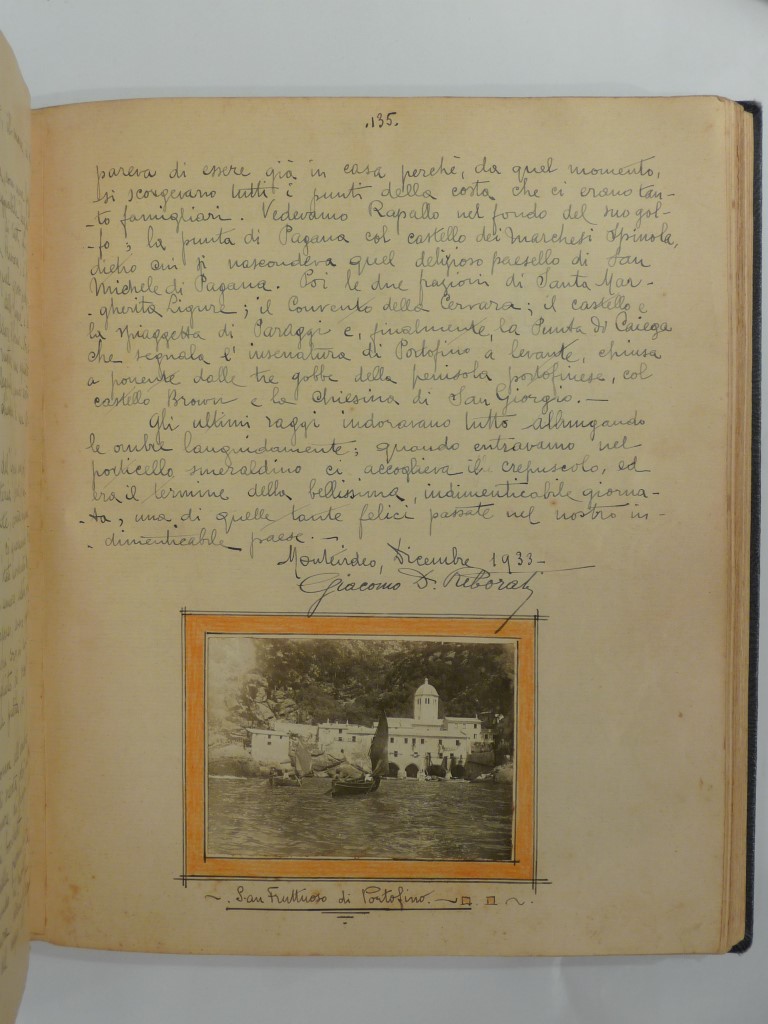 .135.
pareva di essere già in casa perchè, da quel momento,
si scorgevano tutti i punti della costa che ci erano tan-
-to famigliari. Vedevamo Rapallo nel fondo del suo gol-
-fo; la punta di Pagana col castello dei Marchesi Spinola,
dietro cui si nascondeva quel delizioso paesello di San
Michele di Pagana. Poi le due frazioni di Santa Mar-
-gherita Ligure; il Convento della Cervara; il castello e
la spiaggetta di Paraggi e, finalmente, la Punta di Caiega
che segnala l'insenatura di Portofino, a levante, chiusa
a ponente dalle tre gobbe della penisola portofinese, col
castello Brown e la chiesina di San Giorgio.—
Gli ultimi raggi indoravano tutto allungando
le ombre languidamente; quando entravamo nel
porticello smeraldino ci accoglieva il crepuscolo, ed
era il termine della bellissima, indimenticabile giorna-
-ta, una di quelle tante felici passate nel nostro in-
-dimenticabile paese.—
Montevideo, Dicembre 1933—
Giacomo D. Reborati
~. San Fruttuoso di Portofino.~